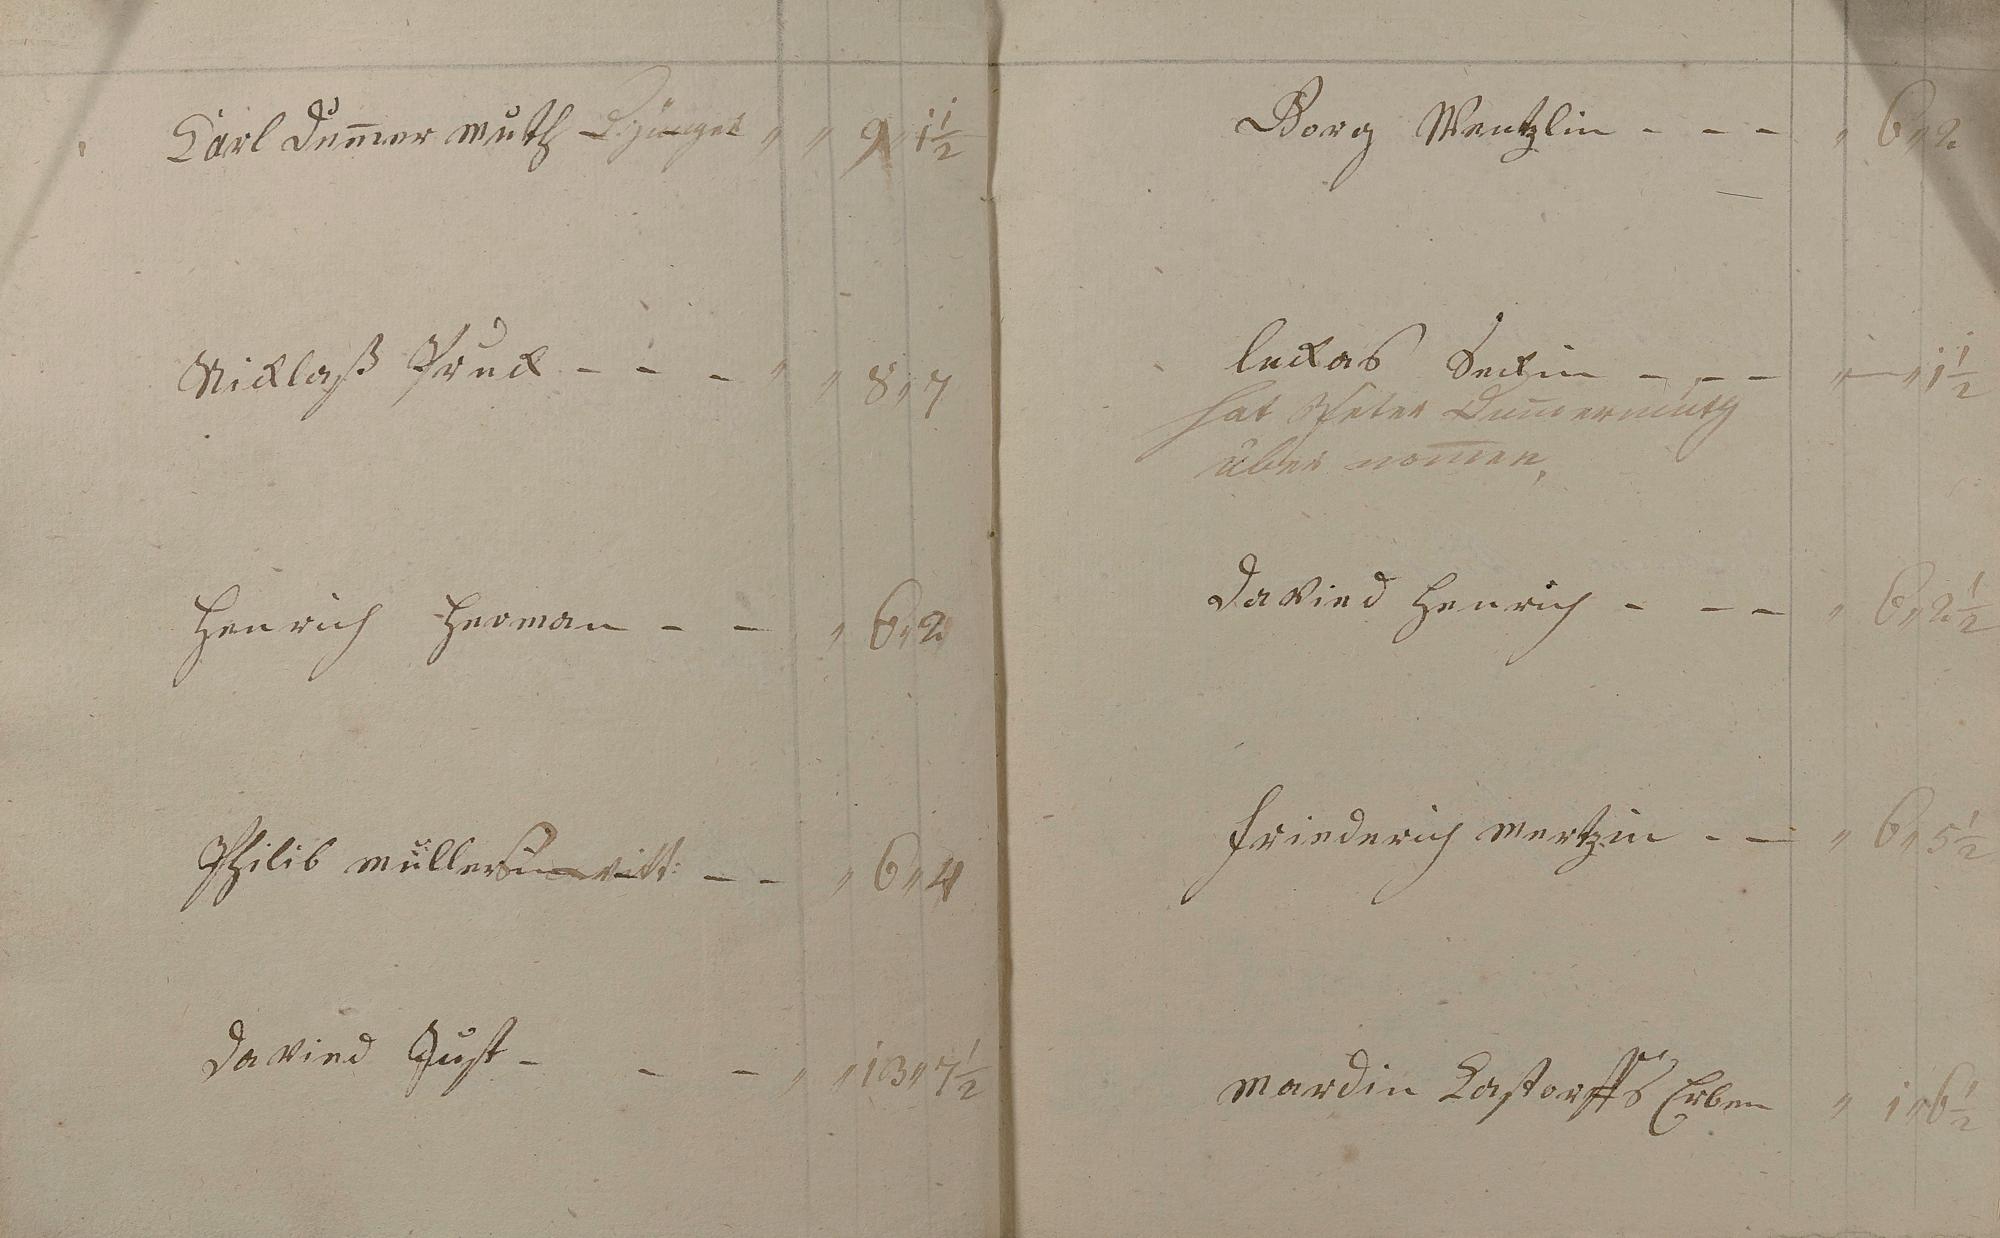 Carl Dum̄er muth D: jünger " " 9 " 1 1/2
Nicklaß Pruck - - - " " 8 " 7
Henrich Herman - - " 6 " 2
Philib müllers witt: - - " 6 " 4
David Just - - - " " 13 " 7 1/2
Georg Wentzlin - - - " 6 " 2
luckas - - - " — " 1 1/2
hat Peter Dum̄ermuth
über nom̄en,
Davied Henrich - - - " 6 " 2 1/2
Friederich mertzin - - " 6 " 5 1/2
mardin Castorffs Erben " 1 " 6 1/2